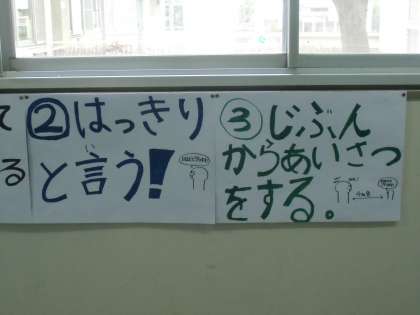 て
る
②はっきり
と言う!
い
③じぶん
からあいさつ
をする。